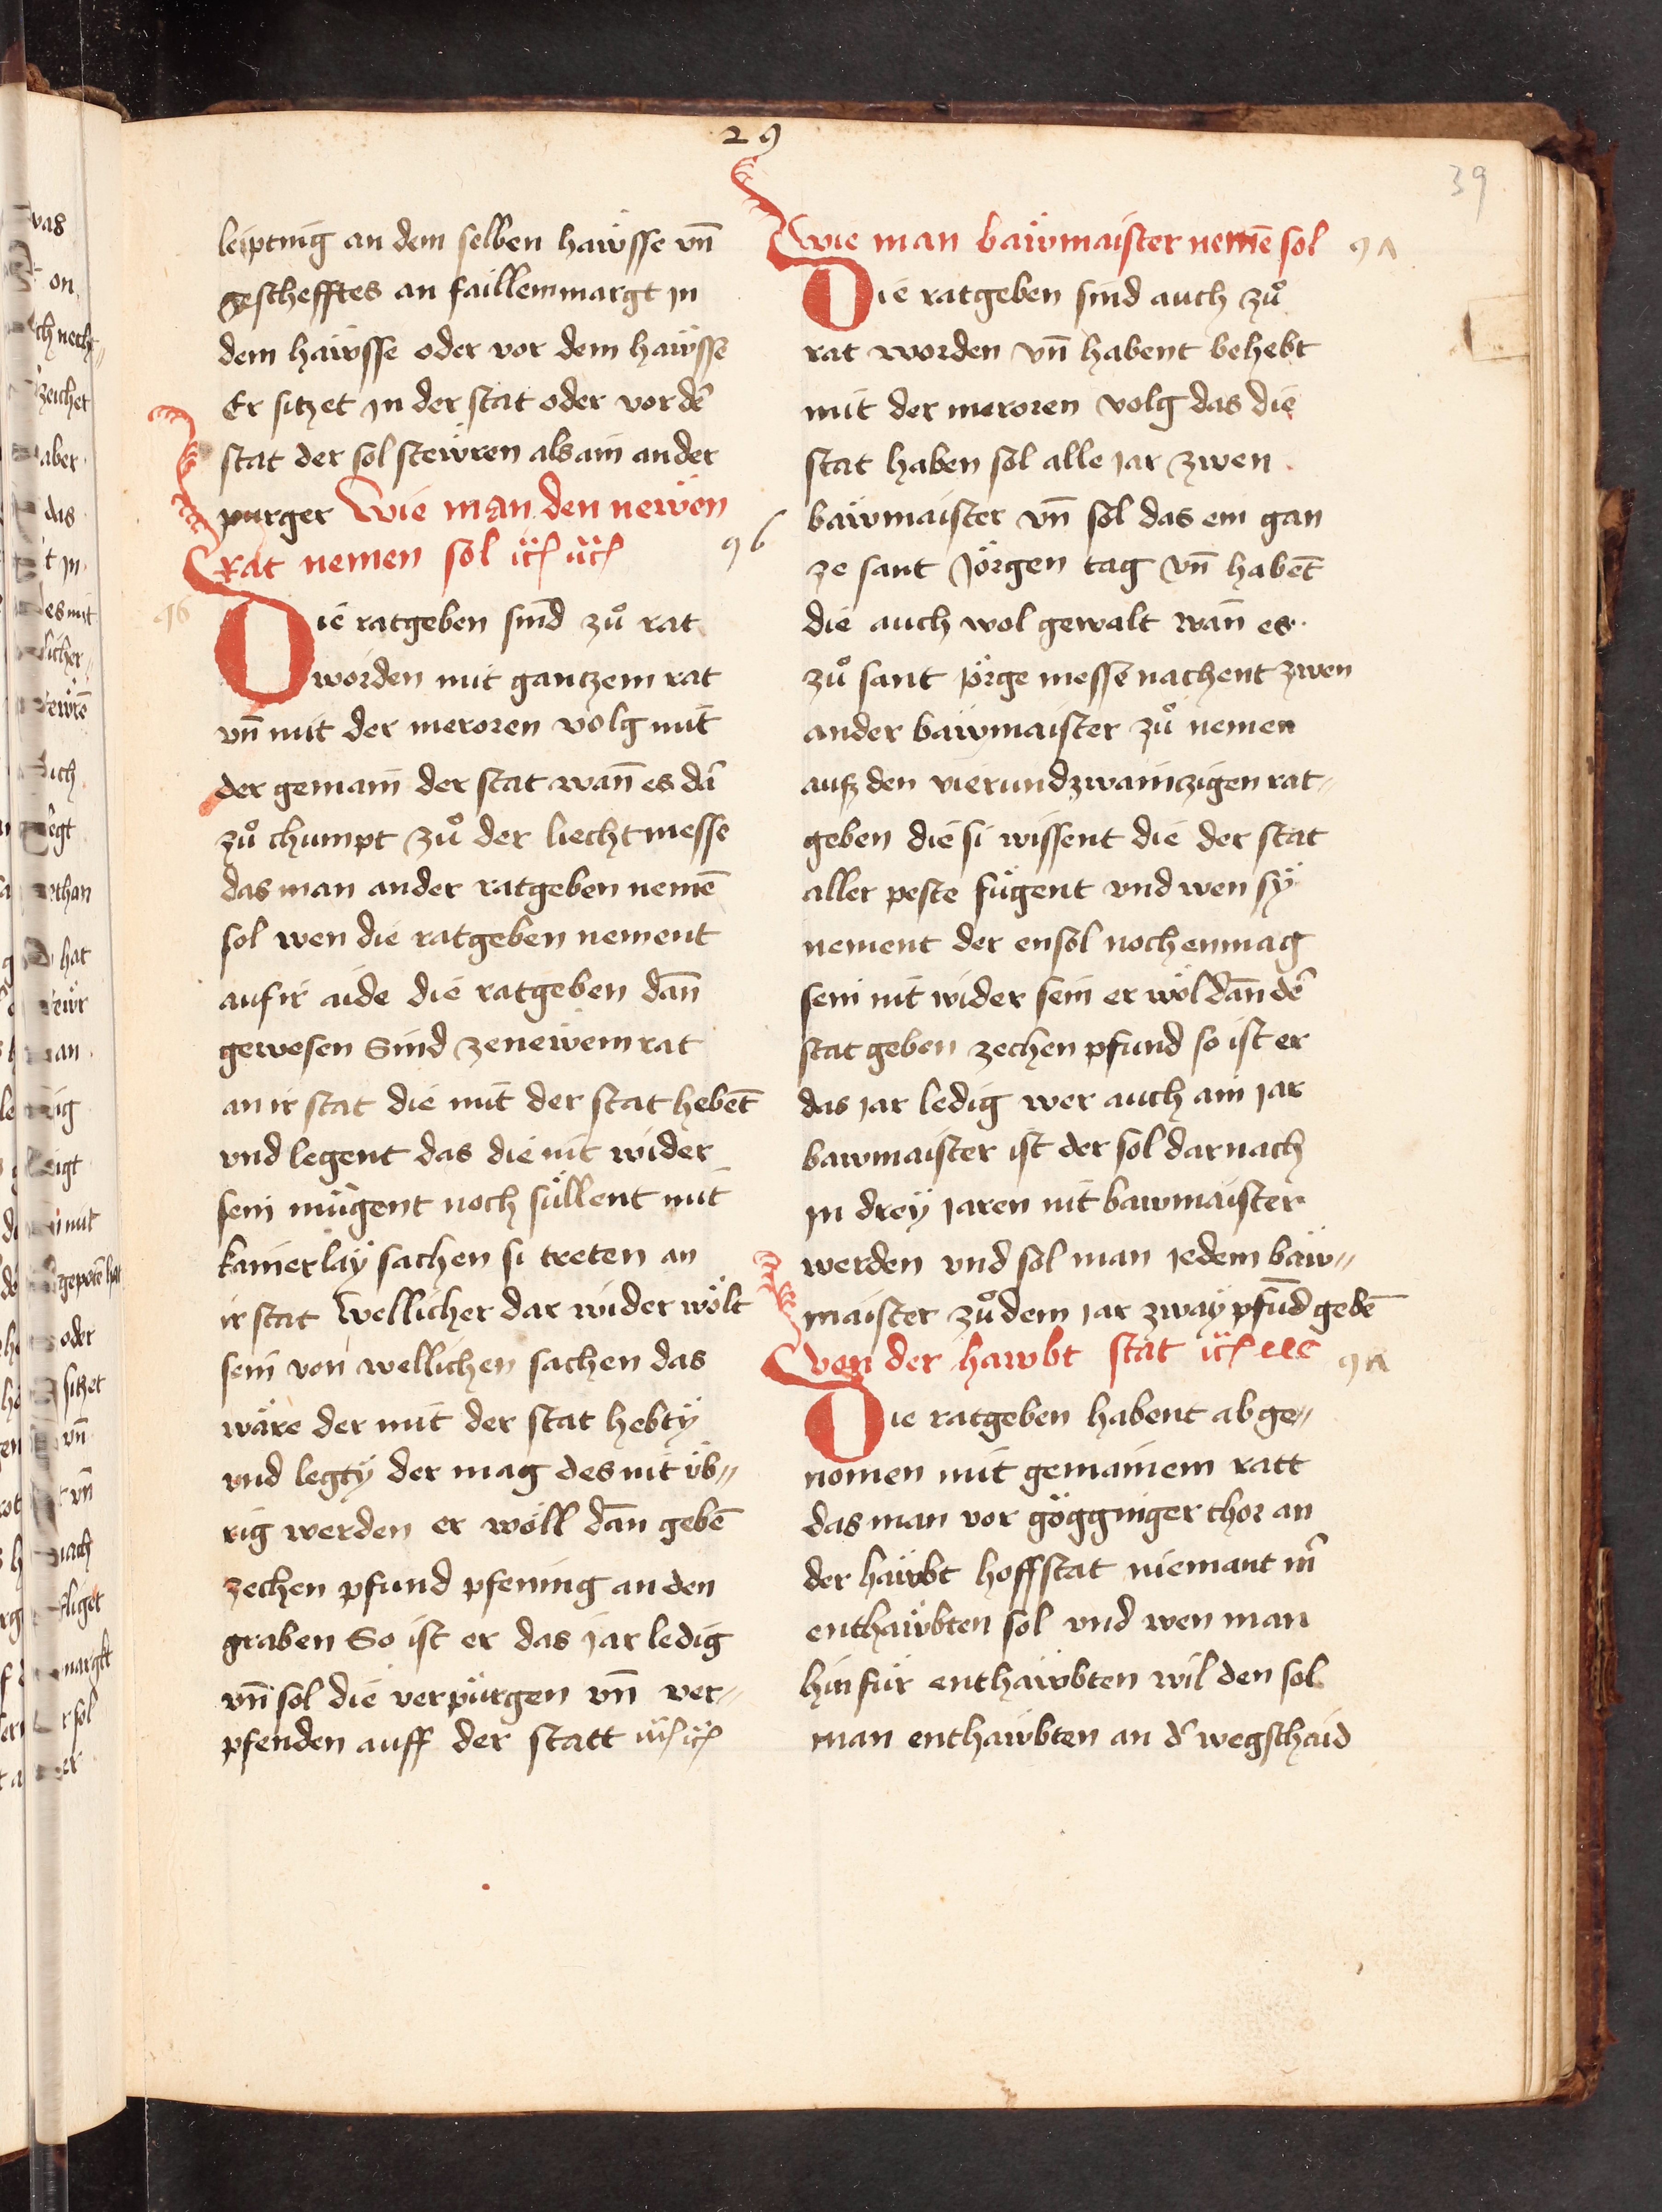 29
39
leiptnig an dem selben haẅsse vn̄
geschefftes an faillem margt jn
dem haẅsse oder vor dem haẅsse
Er sitzet jn der stat oder vor dē
stat der sol stewren als ain ander
purger Wie man den neẅen
rat nemen sol ic̈ ic̈
96
96
Die ratgeben sind zuͦ rat
worden mit gantzem rat
vn̄ mit der meroren volg mit
der gemain der stat wan̄ es dā
zuͦ chumpt zuͦ der liechtmesse
das man ander ratgeben nemē
sol wen die ratgeben nement
auf ir aide die ratgeben dan̄
gewesen Sind ze neẅem rat
an ir stat die mit der stat hebēt
vnd legent das die nit wider
sein mügent noch süllent mit
kainerlaÿ sachen si treten an
ir stat Wellicher dar wider wölt
sein von wellichen sachen das
wäre der mit der stat hebtÿ
vnd legtÿ der mag des nit üb〟
rig werden er wöll dan̄ gebē
zechen pfund pfening an den
graben So ist er das jar ledig
vn̄ sol die verpürgen vn̄ ver〟
pfenden auff der statt ic̈ ic̈
Wie man baẅmaister nemē sol
9Λ
Die ratgeben sind auch zuͦ
rat worden vn̄ habent behebt
mit der meroren volg das die
stat haben sol alle jar zwen
baẅmaister vn̄ sol das ein gan
ze sant Jörgen tag vn̄ habēt
die auch wol gewalt wan̄ es
zuͦ sant jörge messe nachent zwen
ander baẅmaister zuͦ nemen
auß den vierundzwaintzigen rat〟
geben die si wissent die der stat
aller peste fügent vnd wen sÿ
nement der ensol noch enmag
sein nit wider sein er wöl dan̄ dē
stat geben zechen pfund so ist er
das jar ledig wer auch ain jar
bawmaister ist der sol darnach
jn dreÿ jaren nit bawmaister
werden vnd sol man jedem baẅ〟
maister zuͦ dem jar zwaÿ pfund gebē
Von der hawbt stat ic̈
9Λ
Die ratgeben habent abge〟
nomen mit gemainem ratt
das man vor gögginger thor an
der haẅbt hoffstat niemant mē
enthaẅbten sol vnd wen man
hinfür enthaẅbten wil den sol
man enthaẅbten an dˢ wegschaid